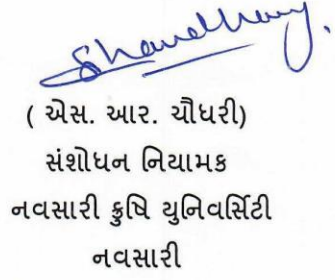 ( એસ. આર. ચૌધરી)
સંશોધન નિયામક
નવસારી કૃષિ યુનિવર્સિટી
નવસારી